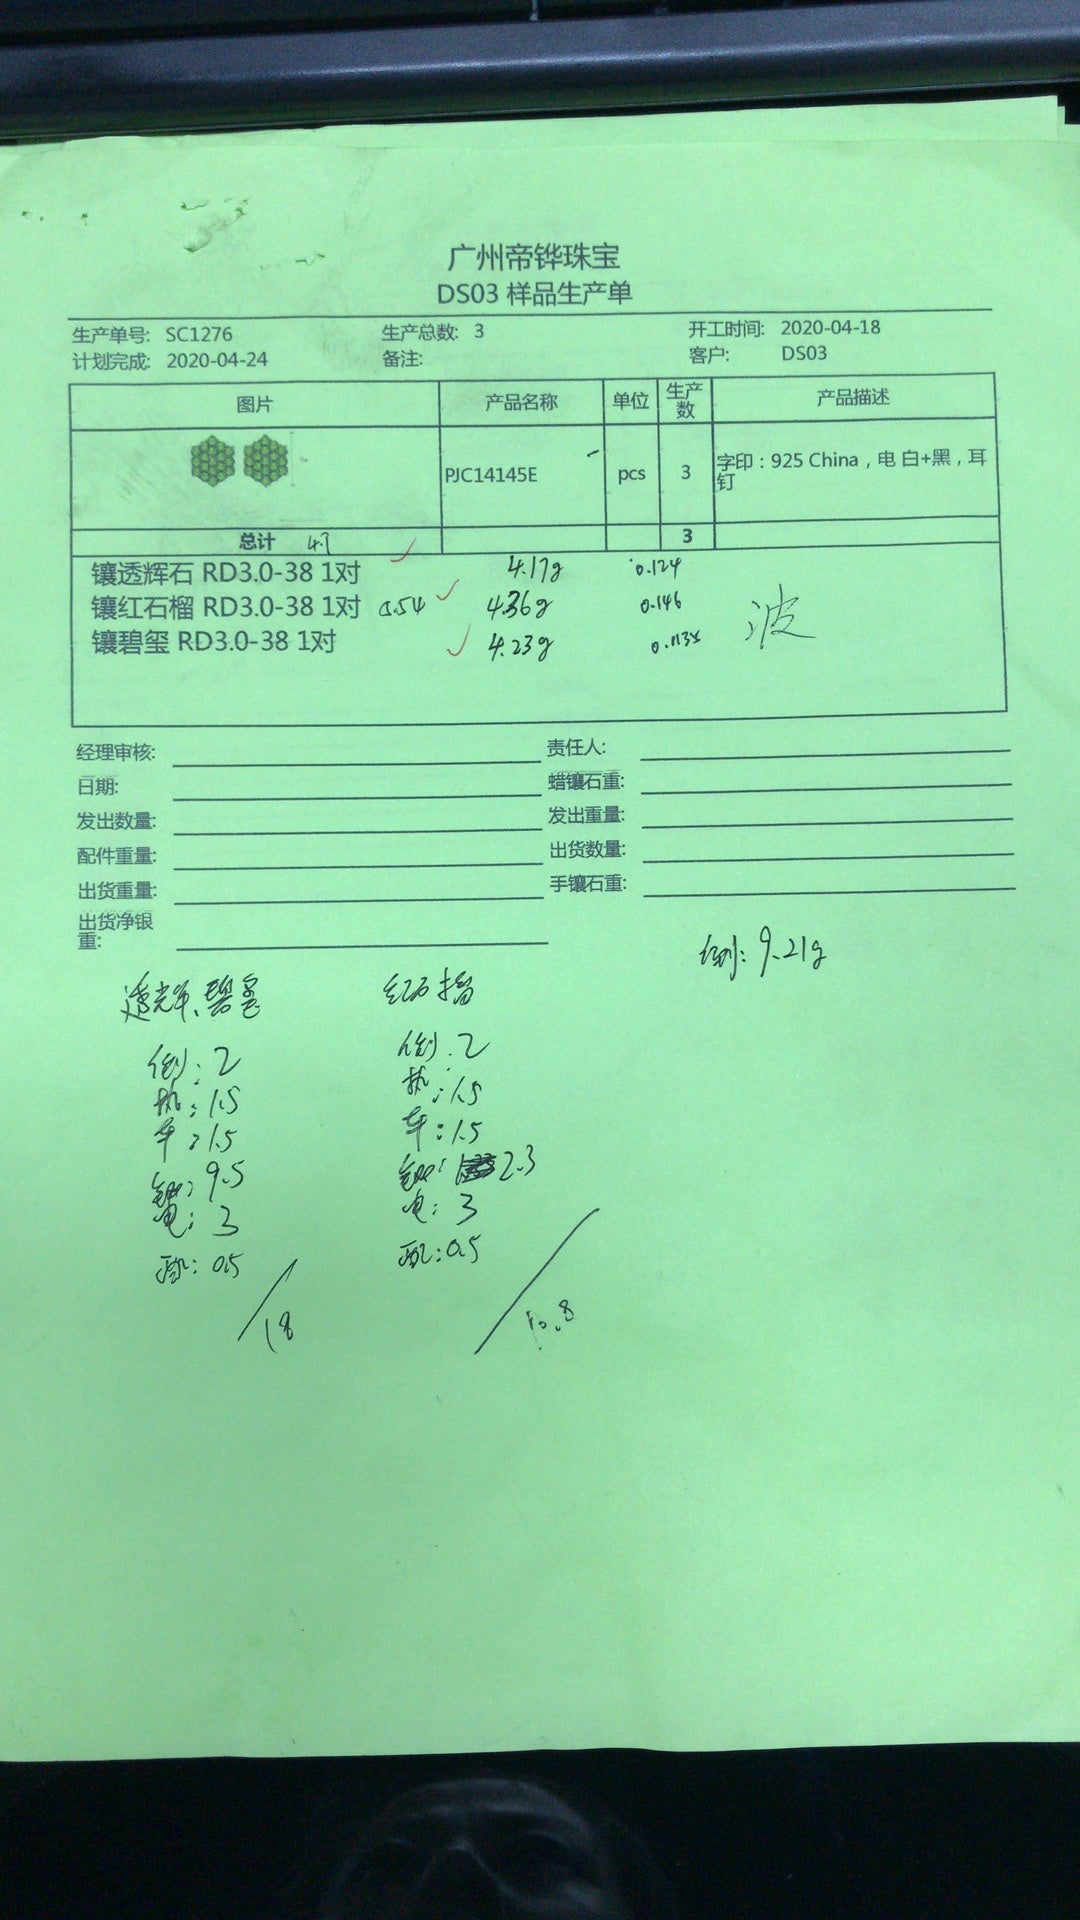 广州帝铧珠宝
DS03 样品生产单
生产单号: SC1276 生产总数: 3 开工时间: 2020-04-18
计划完成: 2020-04-24 备注: 客户: DS03
图片 产品名称 单位 生产数 产品描述
PJC14145E pcs 3 字印：925 China，电 白+黑，耳钉
总计 3
镶透辉石 RD3.0-38 1对 4.17g 0.124
镶红石榴 RD3.0-38 1对 0.54 4.36g 0.146
镶碧玺 RD3.0-38 1对 4.23g 0.1135 波
经理审核: 责任人:
日期: 蜡镶石重:
发出数量: 发出重量:
配件重量: 出货数量:
出货重量: 手镶石重:
出货净银重:
倒: 9.21g
透辉、碧玺 红石榴
倒: 2 倒: 2
执: 1.5 执: 1.5
车: 1.5 车: 1.5
镶: 9.5 镶: 2.3
电: 3 电: 3
配: 0.5 配: 0.5
18 10.8